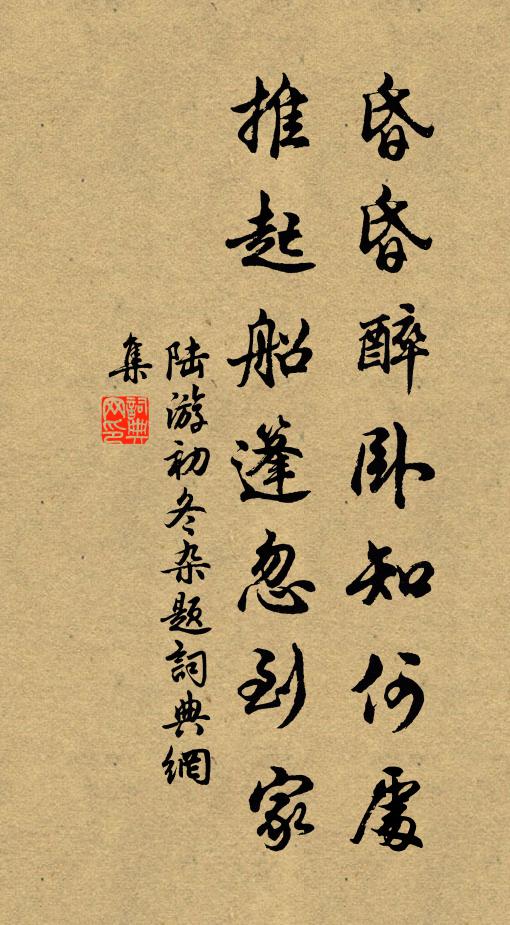 昏昏醉卧知何處
推起船篷忽到家
陆游初冬杂题詞典網
集
詞典
网印